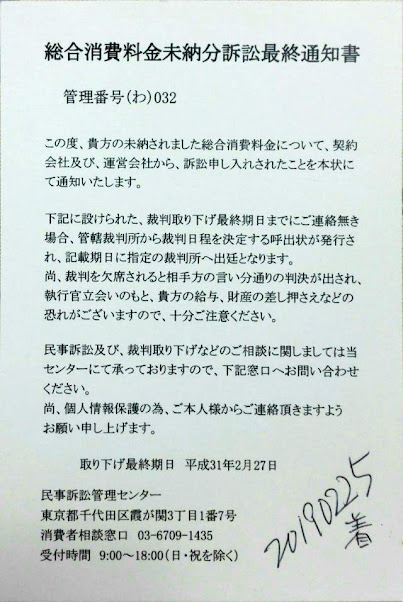 総合消費料金未納分訴訟最終通知書
管理番号(わ)032
この度、貴方の未納されました総合消費料金について、契約
会社及び、運営会社から、訴訟申し入れされたことを本状に
て通知いたします。
下記に設けられた、裁判取り下げ最終期日までにご連絡無き
場合、管轄裁判所から裁判日程を決定する呼出状が発行さ
れ、記載期日に指定の裁判所へ出廷となります。
尚、裁判を欠席されると相手方の言い分通りの判決が出され、
執行官立会いのもと、貴方の給与、財産の差し押さえなどの
恐れがございますので、十分ご注意ください。
民事訴訟及び、裁判取り下げなどのご相談に関しましては当
センターにて承っておりますので、下記窓口へお問い合わせ
ください。
尚、個人情報保護の為、ご本人様からご連絡頂きますよう
お願い申し上げます。
取り下げ最終期日 平成31年2月27日
民事訴訟管理センター
東京都千代田区霞が関3丁目1番7号
消費者相談窓口 03-6709-1435
受付時間 9:00~18:00(日・祝を除く)
20190225
着